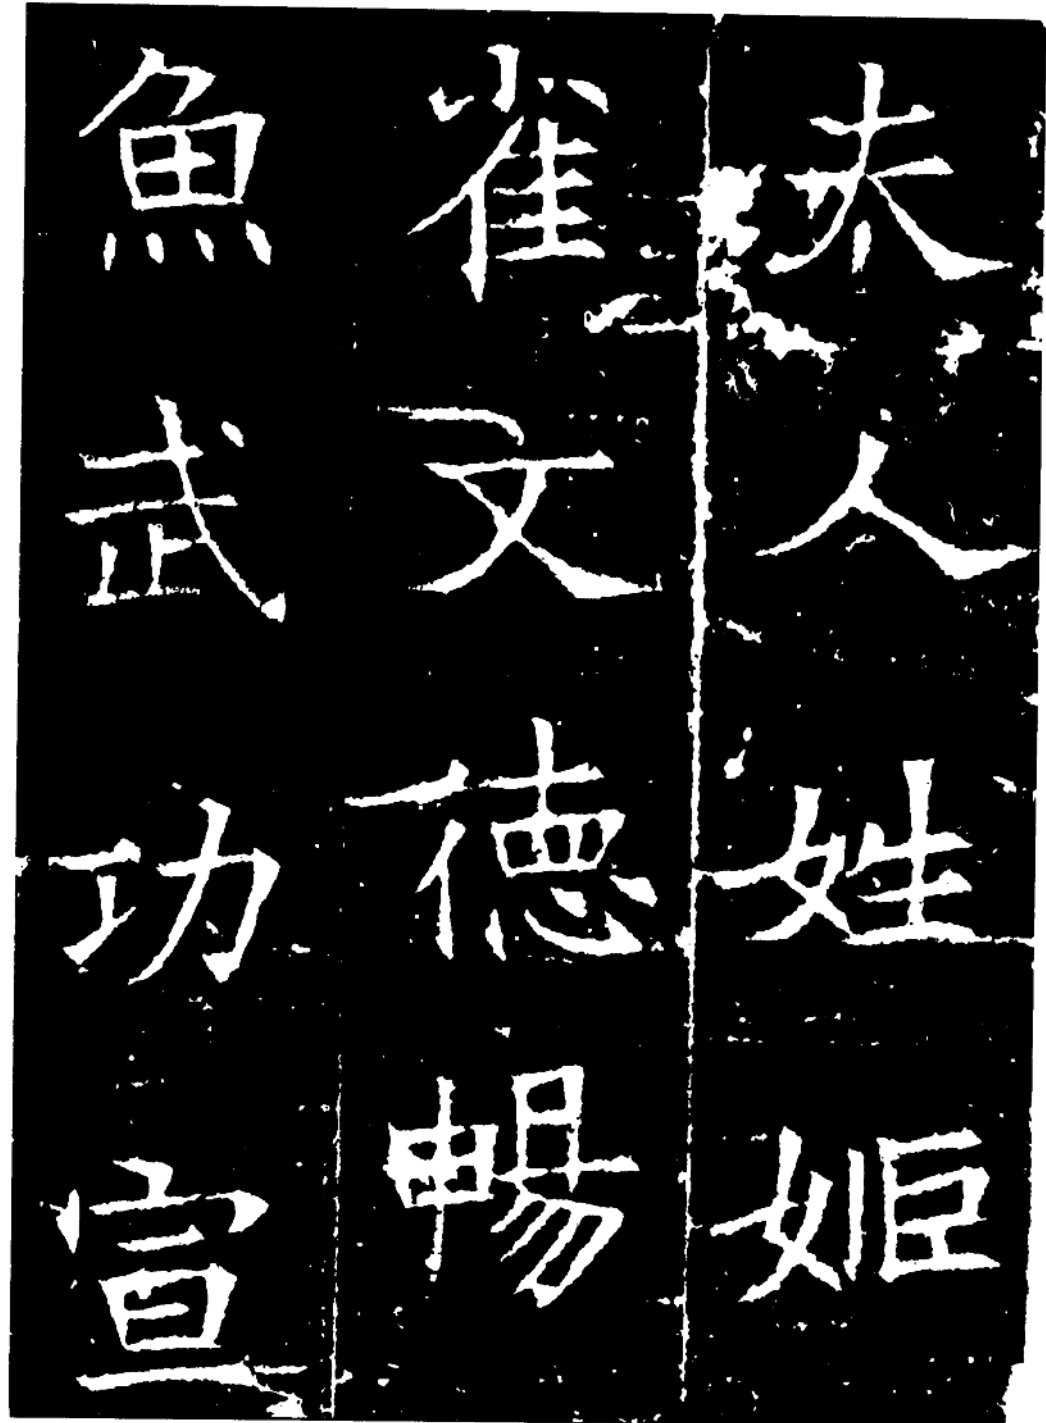 夫人姓姬
雀文德暢
魚武功宣